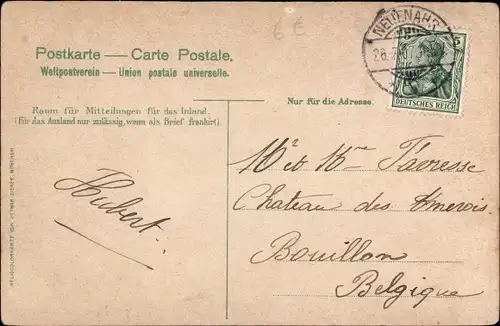 6 €
NEUENAHR
5
DEUTSCHES REICH
Postkarte — Carte Postale.
Weltpostverein — Union postale universelle.
Raum für Mitteilungen für das Inland.
(für das Ausland nur zulässig, wenn als Brief frankirt).
Nur für die Adresse.
Hubert.
Mr et Mme
Château des Amerois
Bouillon
Belgique